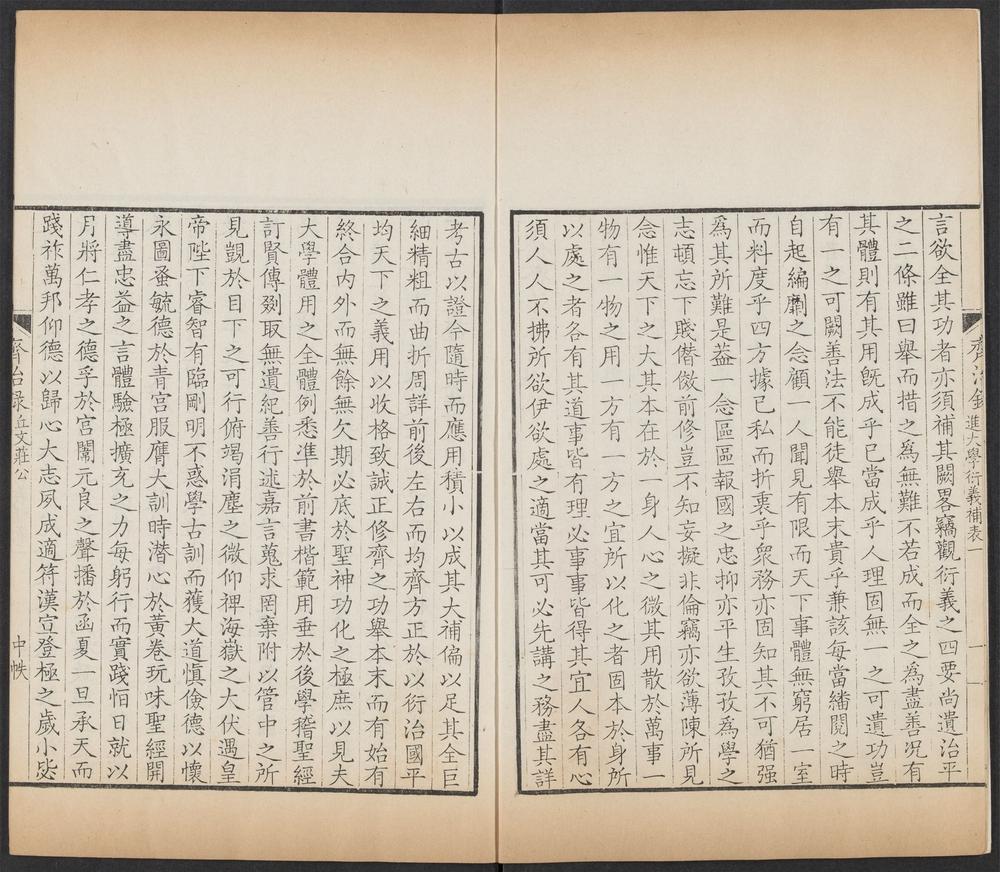 齊治錄 進大學衍義補表一 一
言欲全其功者亦須補其闕畧竊觀衍義之四要尚遺治平
之二條雖曰舉而措之爲無難不若成而全之爲盡善況有
其體則有其用旣成乎已當成乎人理固無一之可遺功豈
有一之可闕善法不能徒舉本末貴乎兼該每當繙閱之時
自起編劘之念顧一人聞見有限而天下事體無窮居一室
而料度乎四方據已私而折衷乎衆務亦固知其不可猶强
爲其所難是葢一念區區報國之忠抑亦平生孜孜爲學之
志頓忘下賤僭倣前修豈不知妄擬非倫竊亦欲薄陳所見
念惟天下之大其本在於一身人心之微其用散於萬事一
物有一物之用一方有一方之宜所以化之者固本於身所
以處之者各有其道事皆有理必事事皆得其宜人各有心
須人人不拂所欲伊欲處之適當其可必先講之務盡其詳
考古以證今隨時而應用積小以成其大補偏以足其全巨
細精粗而曲折周詳前後左右而均齊方正於以衍治國平
均天下之義用以收格致誠正修齊之功舉本末而有始有
終合内外而無餘無欠期必底於聖神功化之極庶以見夫
大學體用之全體例悉準於前書楷範用垂於後學稽聖經
訂賢傳剟取無遺紀善行述嘉言蒐求罔棄附以管中之所
見覬於目下之可行俯竭涓塵之微仰裨海嶽之大伏遇皇
帝陛下睿智有臨剛明不惑學古訓而獲大道愼儉德以懷
永圖蚤毓德於青宮服膺大訓時潜心於黃卷玩味聖經開
導盡忠益之言體驗極擴充之力每躬行而實踐恒日就以
月將仁孝之德孚於宮闈元良之聲播於函夏一旦承天而
踐祚萬邦仰德以歸心大志夙成適符漢宣登極之歲小毖
齊治錄 丘文莊公 中帙